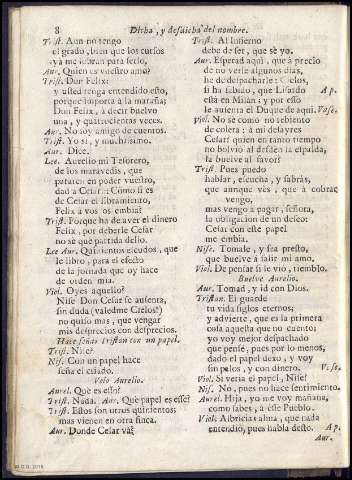 8 Dicha, y desdicha del nombre.
Trist. Aun no tengo
el grado, bien que los cursos
ya me sobran para serlo,
Aur. Quien es vuestro amo?
Trist. Don Felix:
y usted tenga entendido esto,
porque importa a la maraña;
Don Felix, à decir buelvo
una, y quatrocientas veces.
Aur. No soy amigo de cuentos.
Trist. Yo si, y muchissimo.
Aur. Dice.
Lee. Aurelio mi Tesorero,
de los maravedis, que
paran en poder vuestro,
dad à Cesar: Como si es
de Cesar el libramiento,
Felix a vos os embia?
Trist. Porque ha de aver el dinero
Felix, por deberle Cesar
no sè que partida dello.
Lee Aur. Quinientos escudos, que
le libro, para el efecto
de la jornada que oy hace
de orden mia.
Viol. Oyes aquello?
Nise Don Cesar se ausenta,
sin duda (valedme Cielos!)
no quiso mas, que vengar
mis desprecios con desprecios.
Hace señas Tristan con un papel.
Trist. Nise?
Nis. Con un papel hace
seña el criado.
Velo Aurelio.
Aurel. Què es esso?
Trist. Nada. Aur. Què papel es esse?
Trist. Estos son otros quinientos;
mas vienen en otra finca.
Aur. Donde Cesar và?
Trist. Al Infierno
debe de ser, que sè yo.
Aur. Esperad aqui, que à precio
de no verle algunos dias,
he de despacharle: Cielos,
si ha sabido, que Lisardo A p.
està en Milan; y por esso
le ausenta el Duque de aqui. Vase.
Viol. No sè como no rebiento
de colera: à mi desayres
Cesar! quien en tanto tiempo
no bolviò al desden la espalda,
la buelve al favor?
Trist. Pues puedo
hablar, escucha, y sabràs,
que aunque vès, que à cobrar
vengo,
mas vengo à pagar, señora,
la obligacion de un deseo:
Cesar con este papel
me embia.
Nise. Tomale, y sea presto,
que buelve à salir mi amo.
Viol. De pensar si le viò, tiemblo.
Buelve Aurelio.
Aur. Tomad, y id con Dios.
Tristan. El guarde
tu vida siglos eternos;
y advierte, que es la primera
cosa aquesta que no cuento;
yo voy mejor despachado
que pensè, pues por lo menos,
dado el papel dexo, y voy
sin palos, y con dinero. Vase.
Viol. Si veria el papel, Nise!
Nis. No, pues no hace sentimiento.
Aurel. Hija, yo me voy mañana,
como sabes, à esse Pueblo.
Viol. Albricias alma, que nada
entendiò, pues habla desto. A p.
Aur.